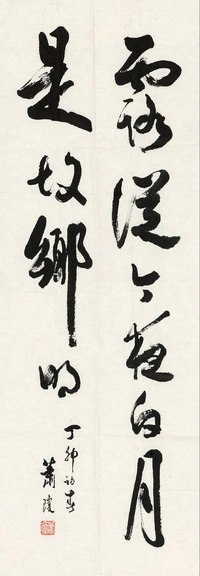 露從今夜白月
是故鄉明
丁卯初春
蕭瓊